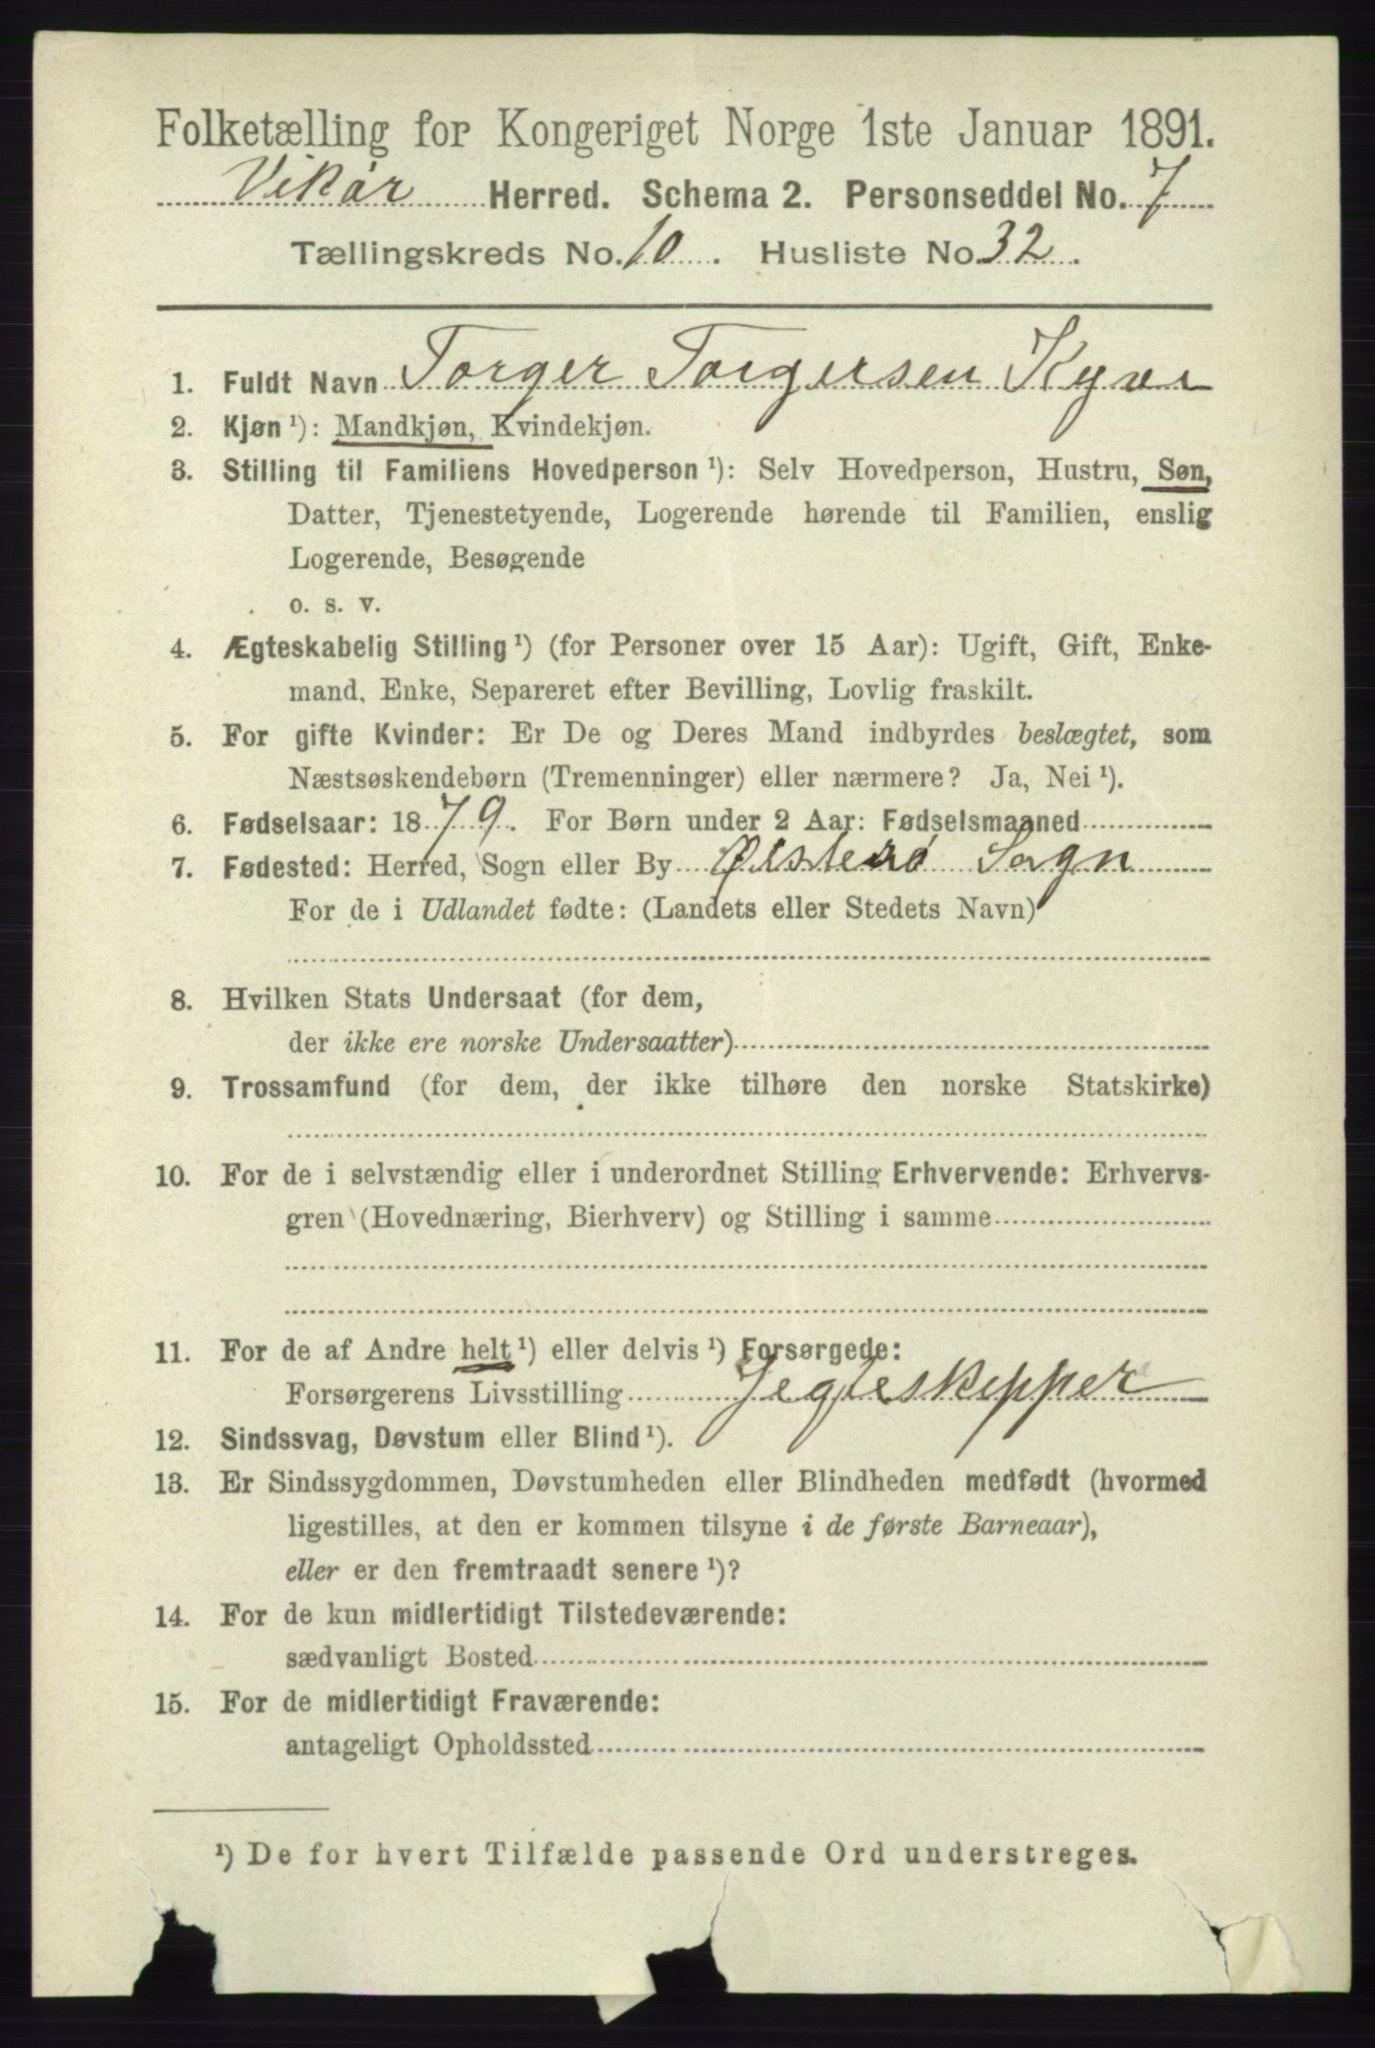 Folketælling for Kongeriget Norge 1ste Januar 1891.
Vikør Herred. Schema 2. Personseddel No. 7
Tællingskreds No. 10. Husliste No. 32.
1. Fuldt Navn Torger Torgersen Kyve
2. Kjøn ¹): Mandkjøn, Kvindekjøn.
3. Stilling til Familiens Hovedperson ¹): Selv Hovedperson, Hustru, Søn,
Datter, Tjenestetyende, Logerende hørende til Familien, enslig
Logerende, Besøgende
o. s. v.
4. Ægteskabelig Stilling ¹) (for Personer over 15 Aar): Ugift, Gift, Enke-
mand, Enke, Separeret efter Bevilling, Lovlig fraskilt.
5. For gifte Kvinder: Er De og Deres Mand indbyrdes beslægtet, som
Næstsøskendebørn (Tremenninger) eller nærmere? Ja, Nei ¹).
6. Fødselsaar: 1879. For Børn under 2 Aar: Fødselsmaaned
7. Fødested: Herred, Sogn eller By Østensø Sogn
For de i Udlandet fødte: (Landets eller Stedets Navn)
8. Hvilken Stats Undersaat (for dem,
der ikke ere norske Undersaatter)
9. Trossamfund (for dem, der ikke tilhøre den norske Statskirke)
10. For de i selvstændig eller i underordnet Stilling Erhvervende: Erhvervs-
gren (Hovednæring, Bierhverv) og Stilling i samme
11. For de af Andre helt ¹) eller delvis ¹) Forsørgede:
Forsørgerens Livsstilling Jegteskipper
12. Sindssvag, Døvstum eller Blind ¹).
13. Er Sindssygdommen, Døvstumheden eller Blindheden medfødt (hvormed
ligestilles, at den er kommen tilsyne i de første Barneaar),
eller er den fremtraadt senere ¹)?
14. For de kun midlertidigt Tilstedeværende:
sædvanligt Bosted
15. For de midlertidigt Fraværende:
antageligt Opholdssted
¹) De for hvert Tilfælde passende Ord understreges.